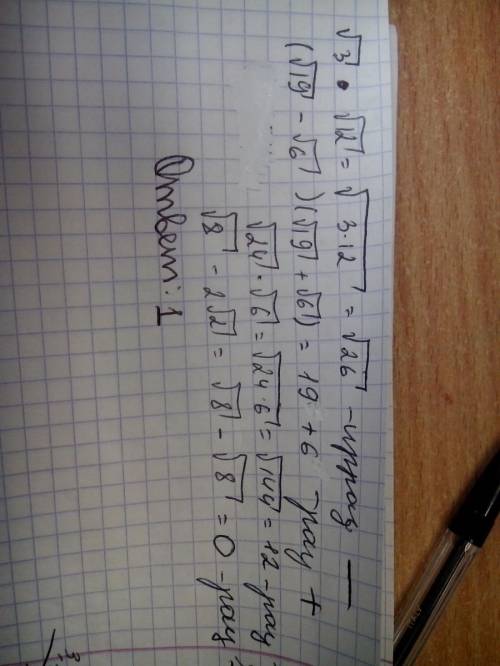 √3 · √12 = √3·12 = √26 - иррац —
(√19 - √6)(√19 + √6) = 19 + 6 рац +
√24 · √6 = √24·6 = √144 = 12 - рац
√8 - 2√2 = √8 - √8 = 0 - рац
Ответ: 1